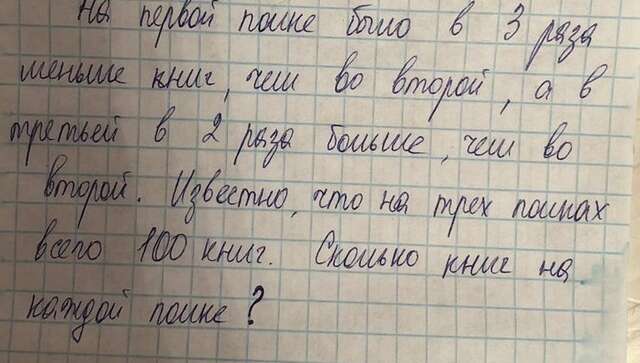 На первой полке было в 3 раза
меньше книг, чем во второй, а в
третьей в 2 раза больше, чем во
второй. Известно, что на трех полках
всего 100 книг. Сколько книг на
каждой полке?